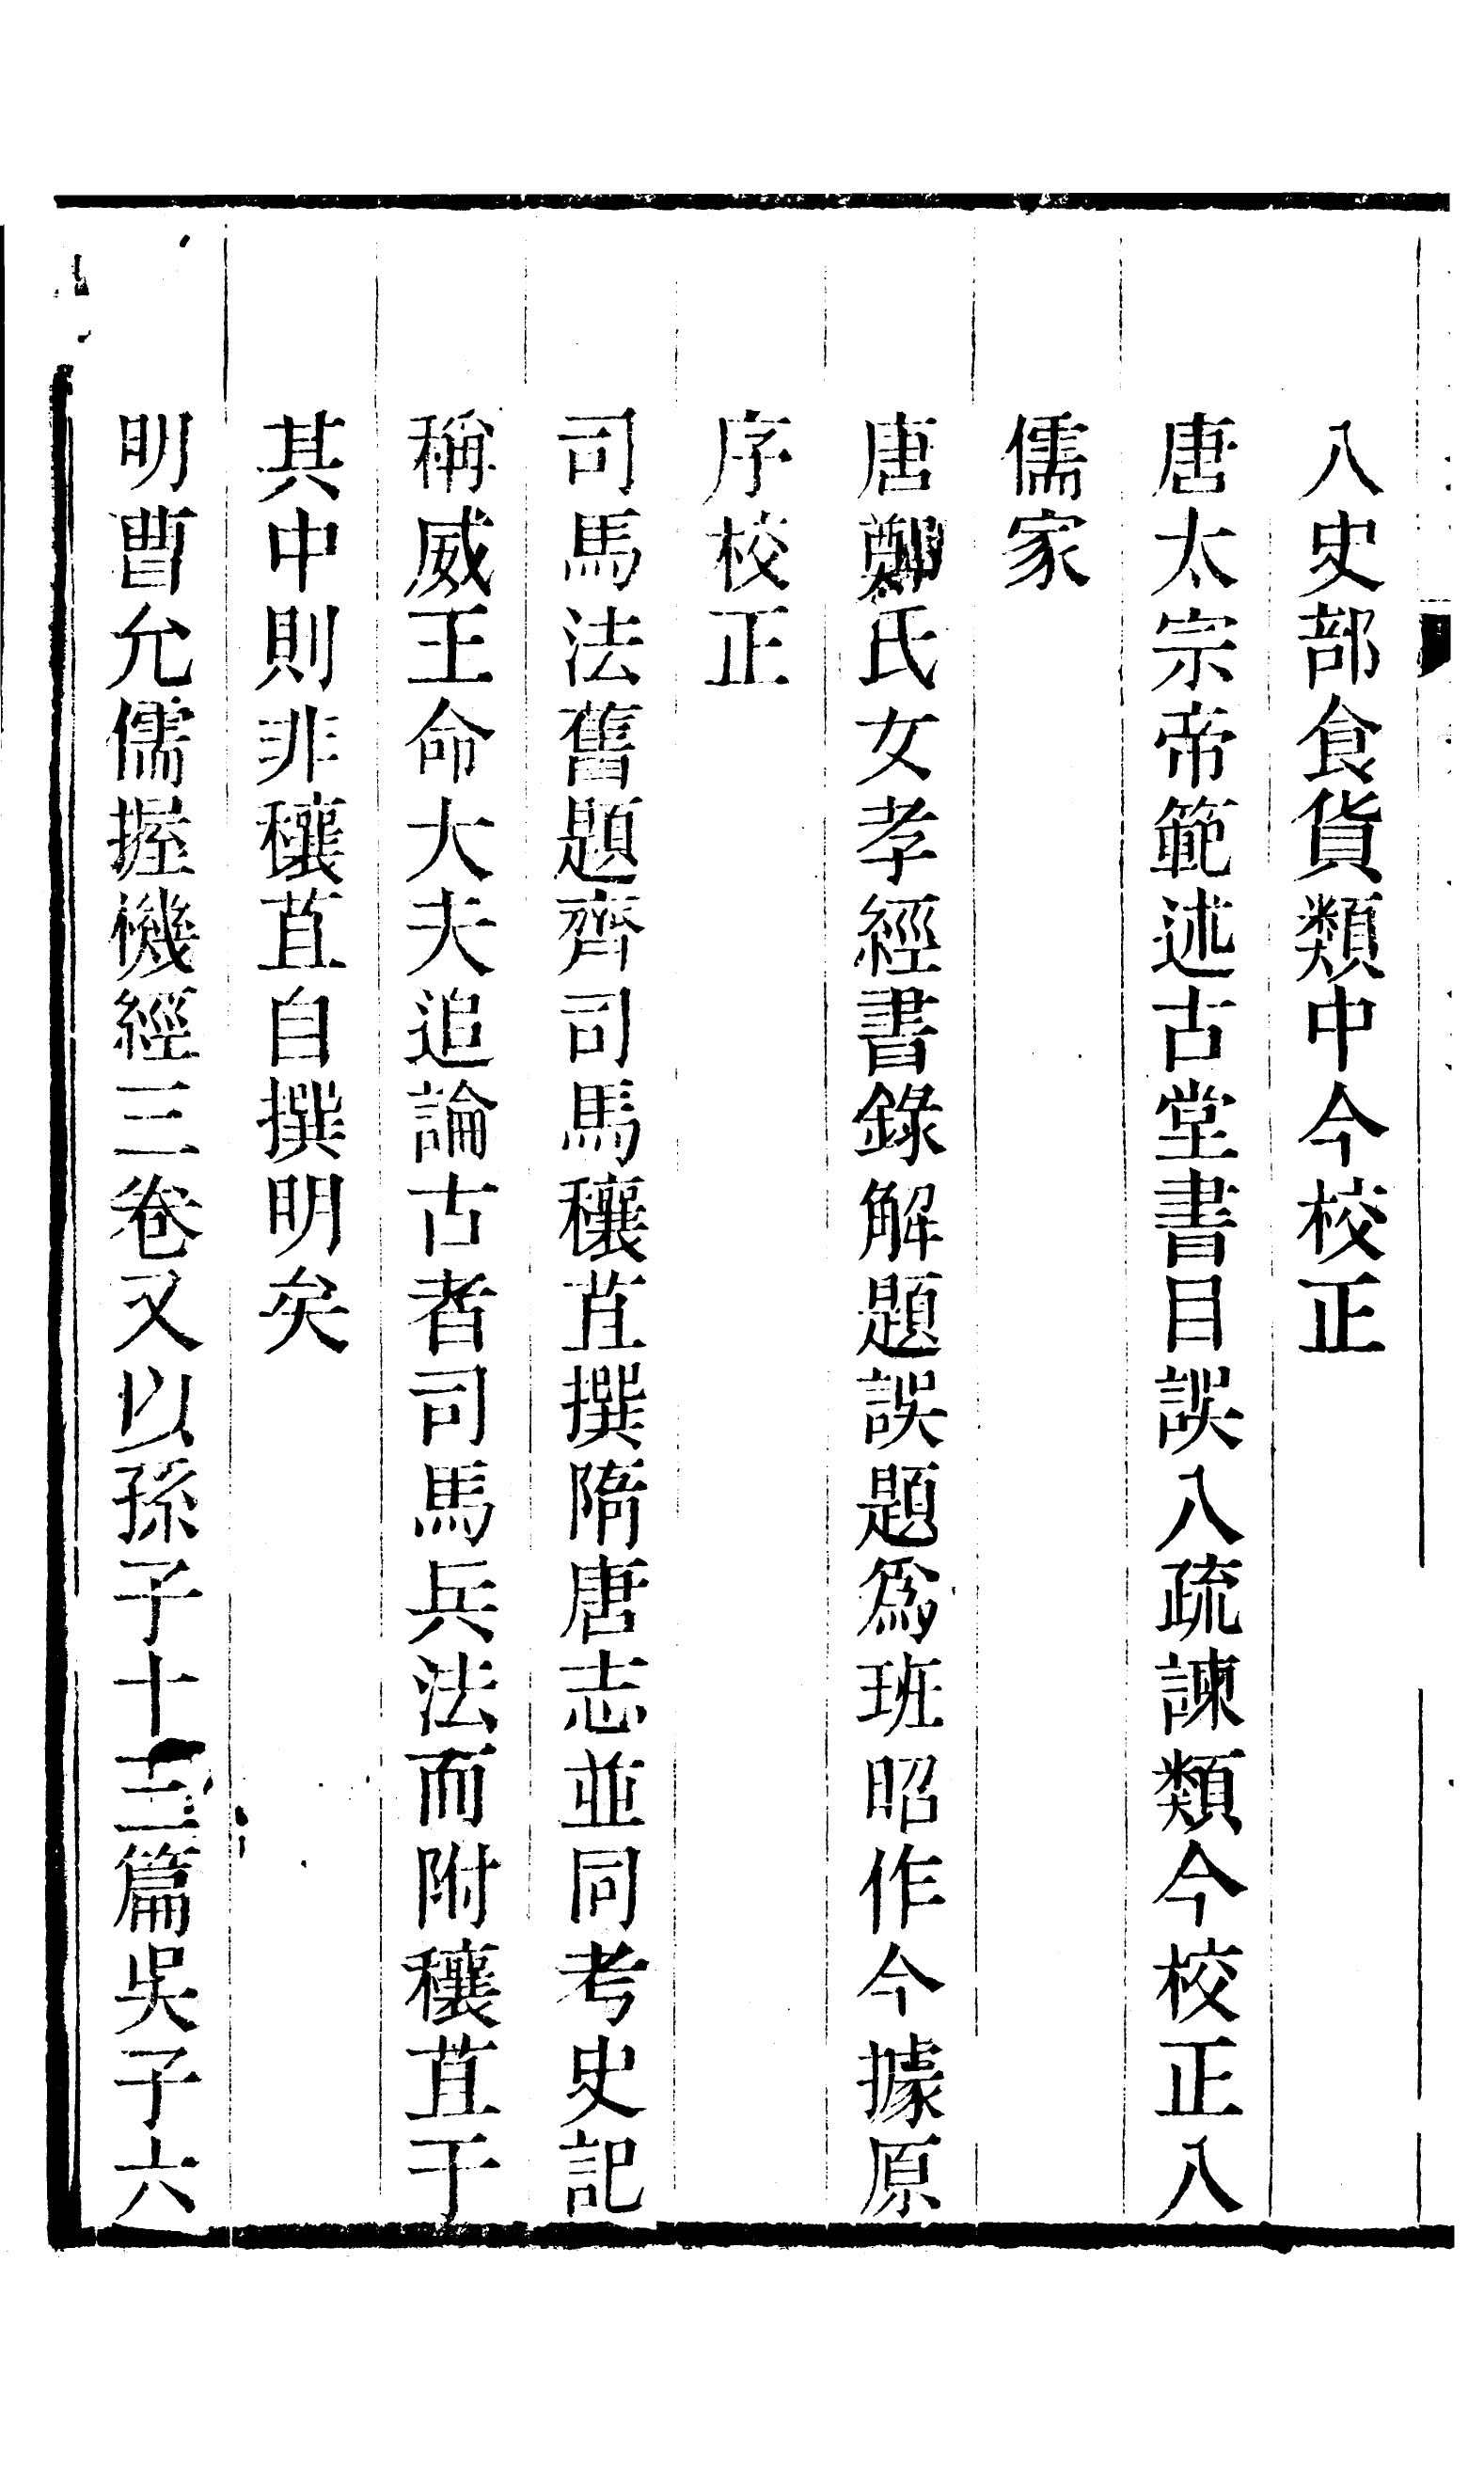 入史部食貨類中今校正
唐太宗帝範述古堂書目誤入疏諫類今校正入
儒家
唐鄭氏女孝經書錄解題誤題爲班昭作今據原
序校正
司馬法舊題齊司馬穰苴撰隋唐志並同考史記
稱威王命大夫追論古者司馬兵法而附穰苴于
其中則非穰苴自撰明矣
明曹允儒握機經三卷又以孫子十三篇吳子六